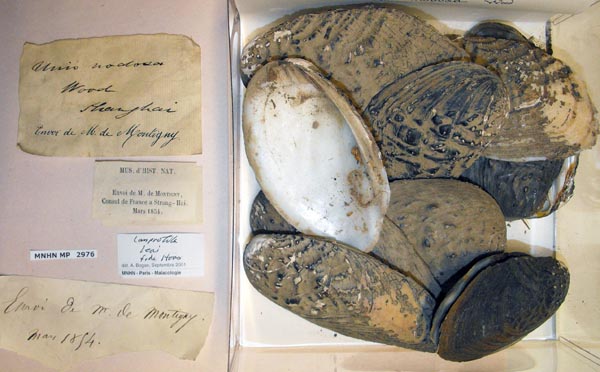 Unio nodosa
Wood
Shanghai
Envoi de M. de Montigny
MUS. d'HIST. NAT.
Envoi de M. de Montigny,
Consul de France a Shang-Hai.
Mars 1854.
MNHN MP 2976
Lamprotula
leai
fide Haas
dét. A. Bogan, Septembre 2001
MNHN - Paris - Malacologie
Envoi de M. de Montigny.
Mars 1854.